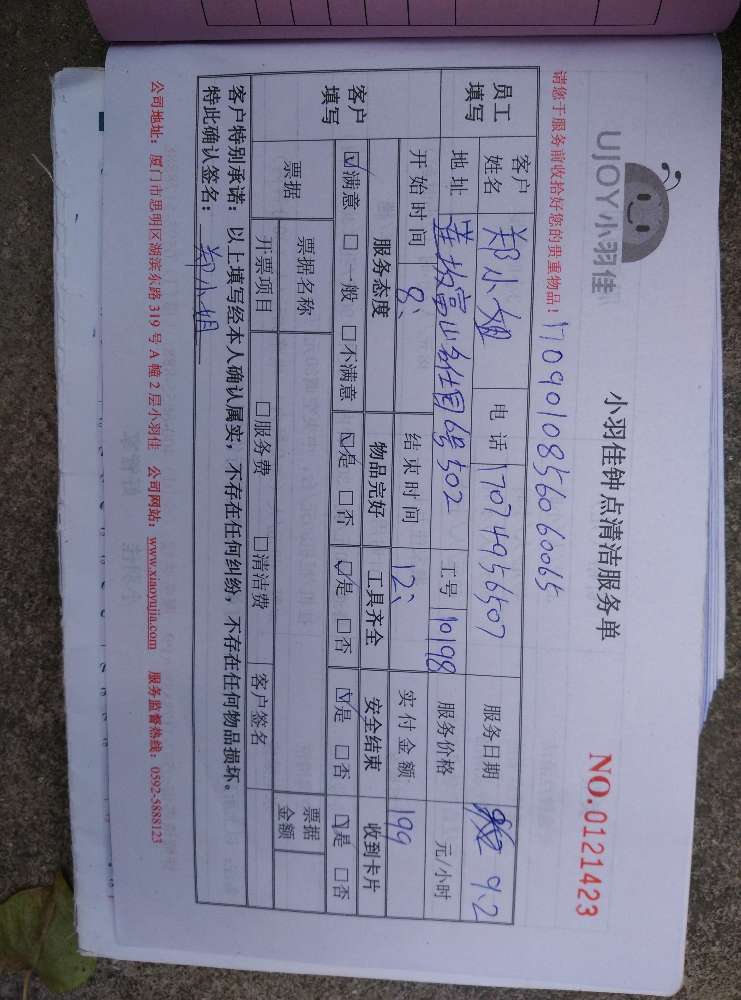 UJOY小羽佳
小羽佳钟点清洁服务单
NO.0121423
请您于服务前收拾好您的贵重物品!
1709010856060065
员工填写
客户姓名 郑小姐 电话 17074956507 服务日期 9.2
地址 莲坂富山 6号502 工号 10198 服务价格 元/小时
开始时间 8: 结束时间 12: 实付金额 199
客户填写
服务态度 物品完好 工具齐全 安全结束 收到卡片
☑满意 □一般 □不满意 ☑是 □否 ☑是 □否 ☑是 □否 ☑是 □否
票据 票据名称 票据金额
开票项目 □服务费 □清洁费 客户签名
客户特别承诺: 以上填写经本人确认属实,不存在任何纠纷,不存在任何物品损坏。
特此确认签名: 郑小姐
公司地址: 厦门市思明区湖滨东路319号A幢2层小羽佳 公司网站: www.xiaoyujia.com 服务监督热线: 0592-5888123